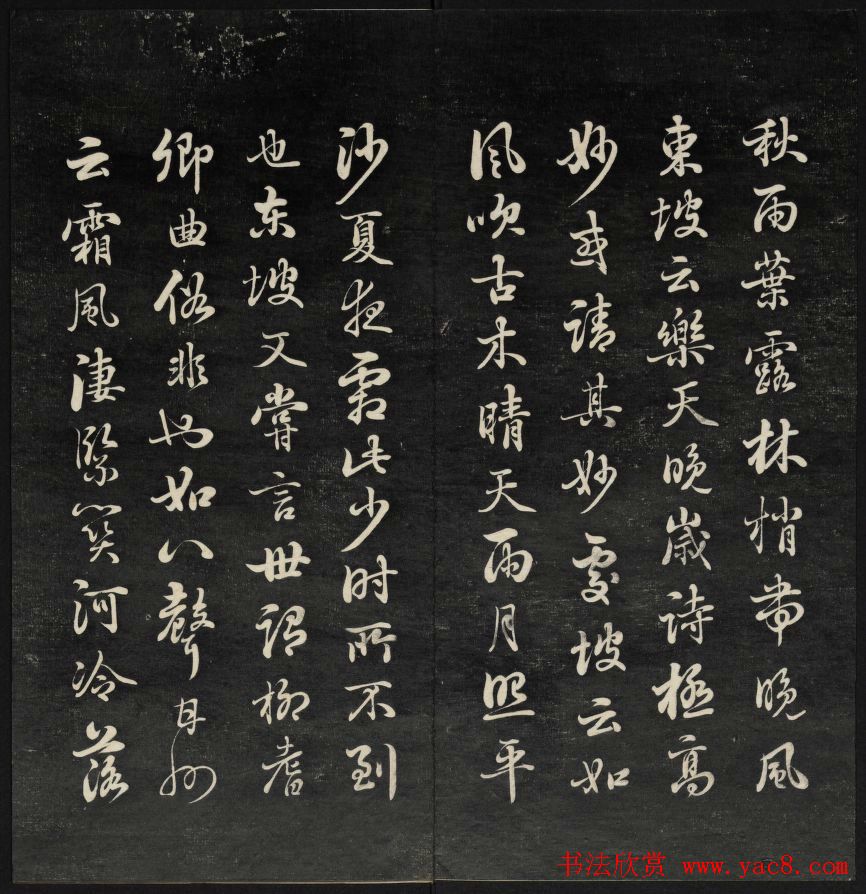 秋雨葉露林梢帶晚風
東坡云樂天晚歲詩極高
妙或請其妙處坡云如
風吹古木晴天雨月照平
沙夏夜霜此少時所不到
也東坡又嘗言世謂柳耆
卿曲俗非也如八聲甘州
云霜風淒緊關河冷落
书法欣赏 www.yac8.com